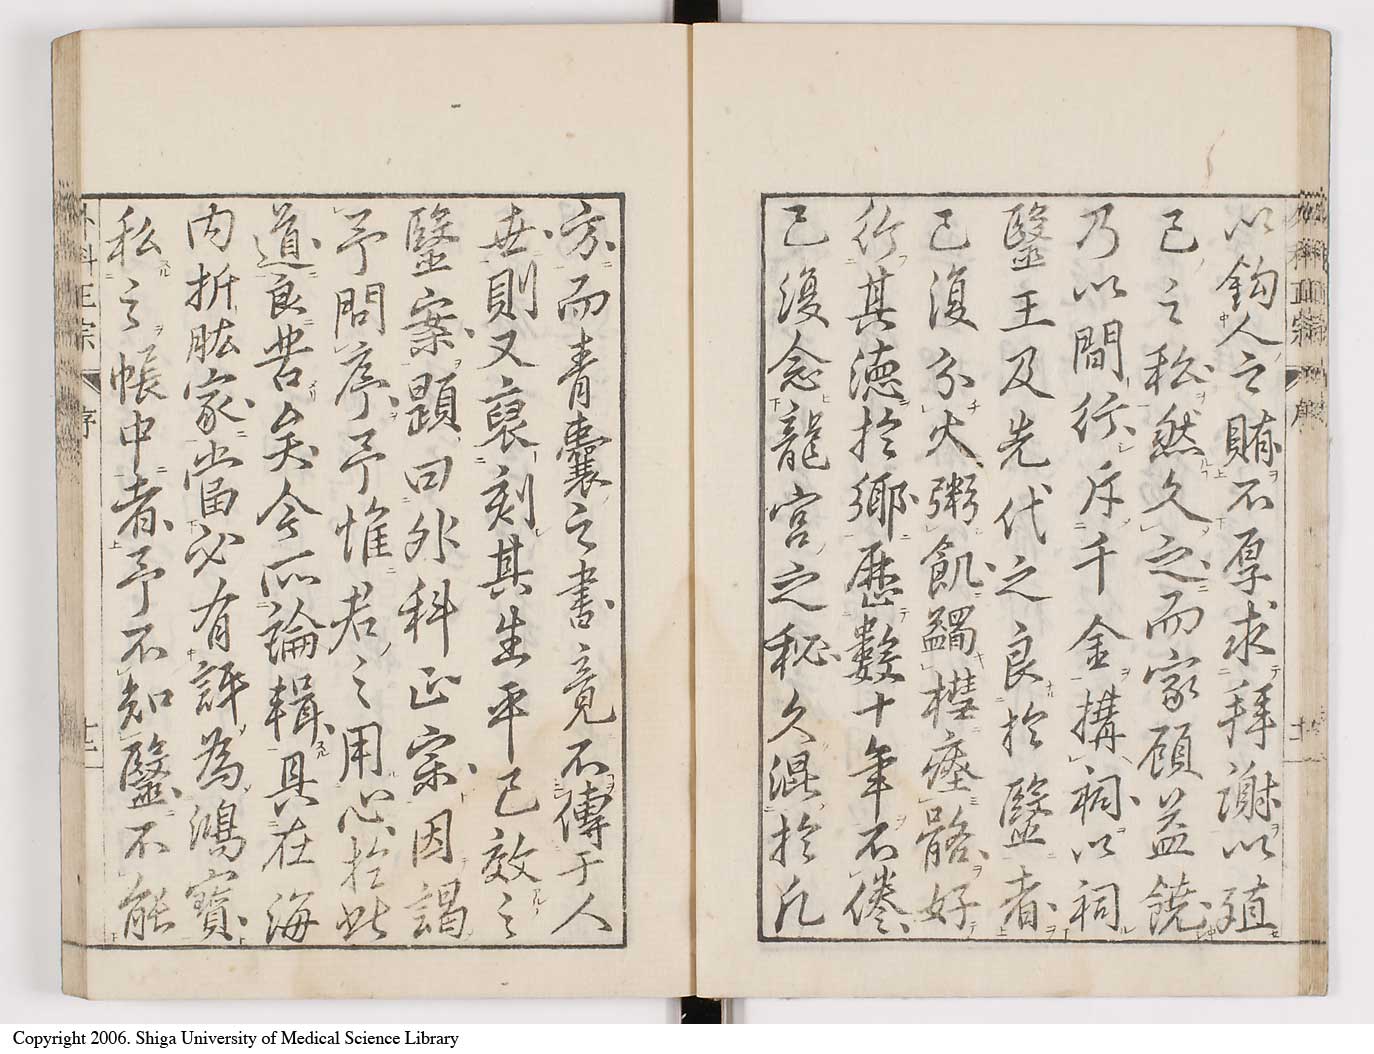 以鈎人之賄不厚求拜謝以殖
已之私然久之而家顧益饒
乃以間行斥千金搆祠以祠
醫王及先代之良於醫者
已復分火粥飢蠲槥瘞骼好
行其德於鄉歷數十年不倦
已復念龍宮之秘久混於凡
方而青囊之書竟不傳于人
世則又裒刻其生平已效之
醫案題曰外科正宗因謁
予問序予惟君之用心於此
道良苦矣今所論輯具在海
內折肱家當必有評為鴻寶
私之帳中者予不知醫不能
外科正宗 序
Copyright 2006. Shiga University of Medical Science Library